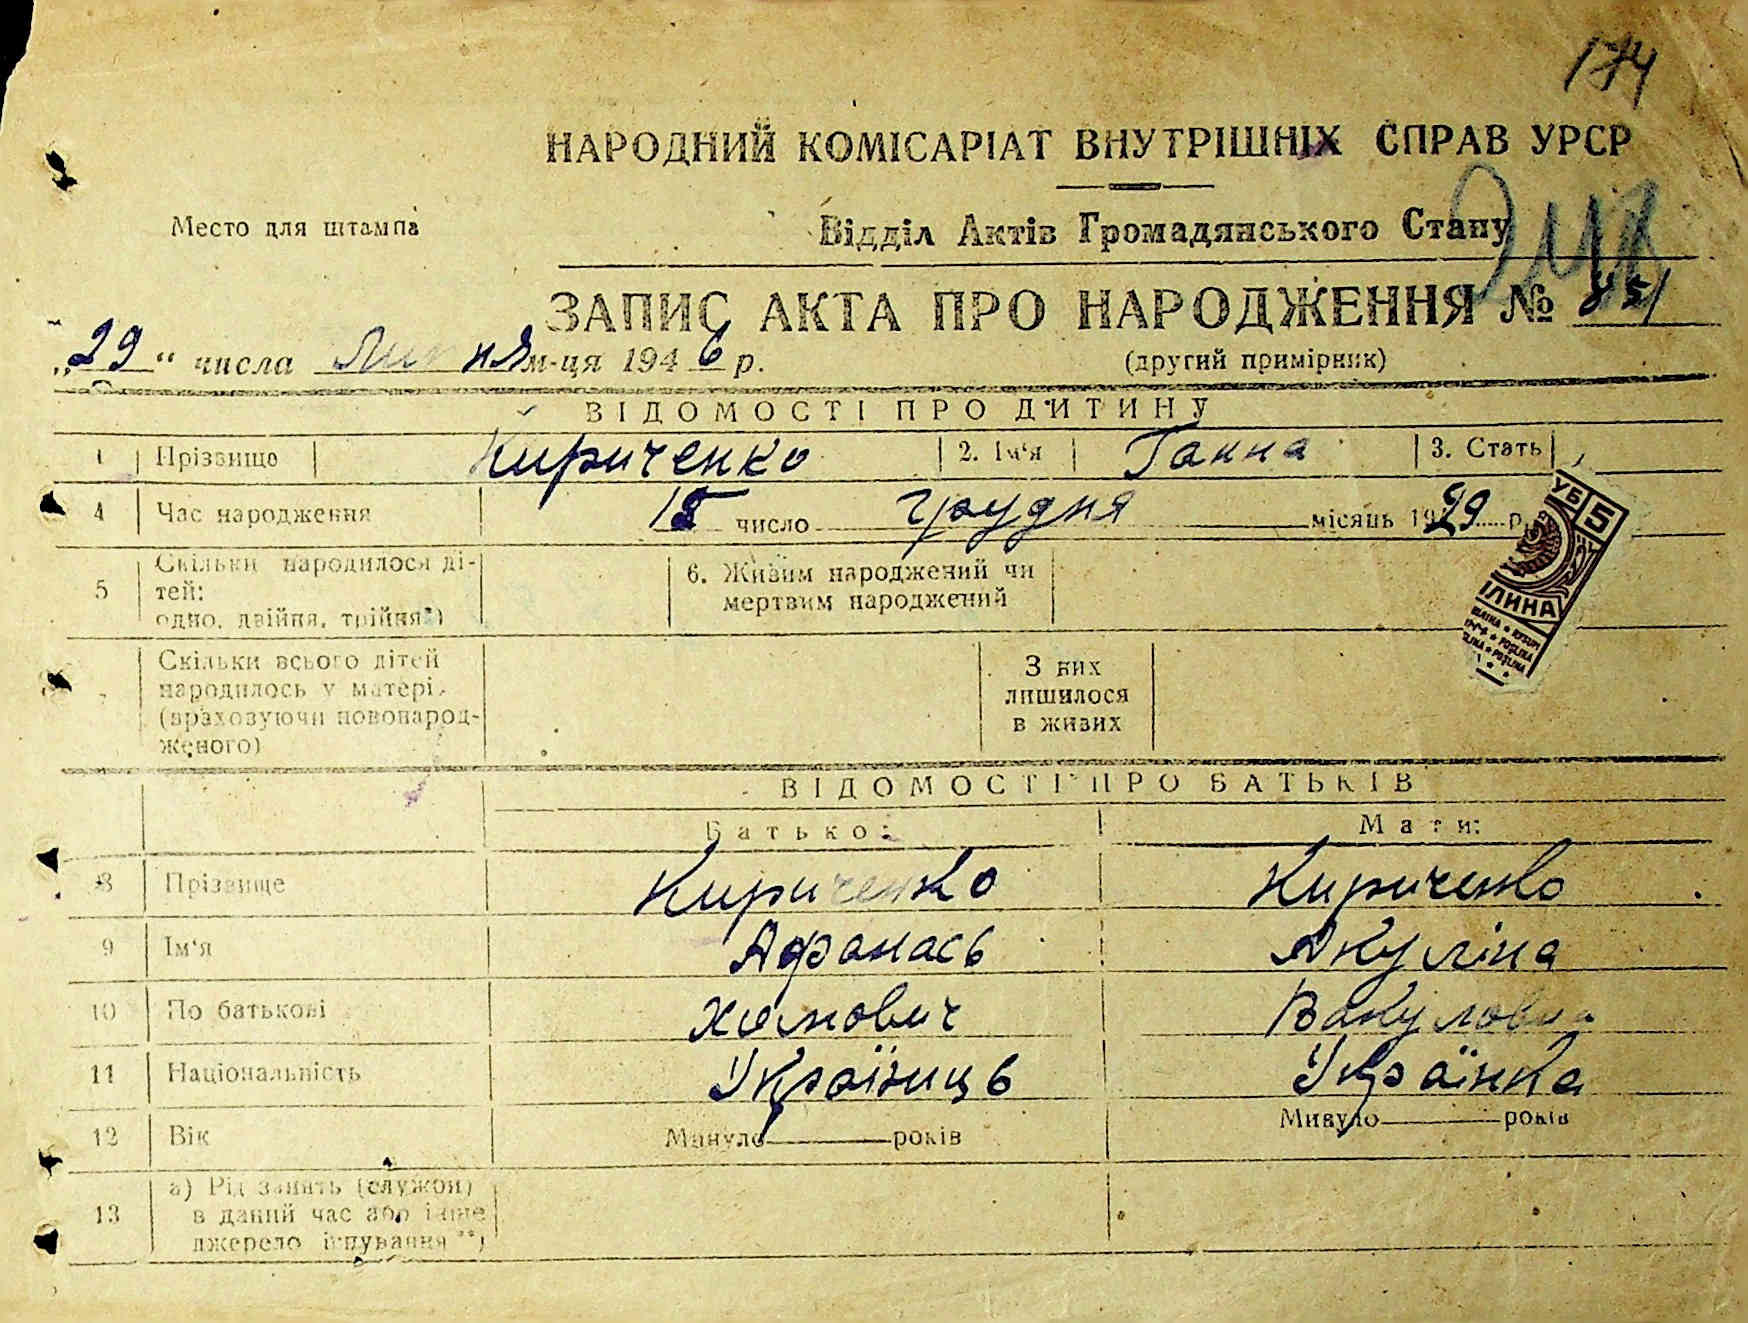 174
НАРОДНИЙ КОМІСАРІАТ ВНУТРІШНІХ СПРАВ УРСР
Место для штампа
Відділ Актів Громадянського Стану
ЗАПИС АКТА ПРО НАРОДЖЕННЯ №
„29“ числа Липня м-ця 1946 р.
(другий примірник)
ВІДОМОСТІ ПРО ДИТИНУ
1 Прізвище Кириченко 2. Ім'я Ганна 3. Стать
4 Час народження число грудня місяць 1929 р.
5 Скільки народилося ді-
тей:
одно, двійня, трійня*)
6. Живим народжений чи
мертвим народжений
УБ 5
ІЛИНА
Скільки всього дітей
народилось у матері
(враховуючи новонарод-
женого)
З них
лишилося
в живих
ВІДОМОСТІ ПРО БАТЬКІВ
Батько: Мати:
8 Прізвище Кириченко Кириченко
9 Ім'я Афанась Акуліна
10 По батькові Хомович Вакуловна
11 Національність Українець Українка
12 Вік Минуло років Минуло років
13 а) Рід занять (служби)
в даний час або інше
джерело існування**)